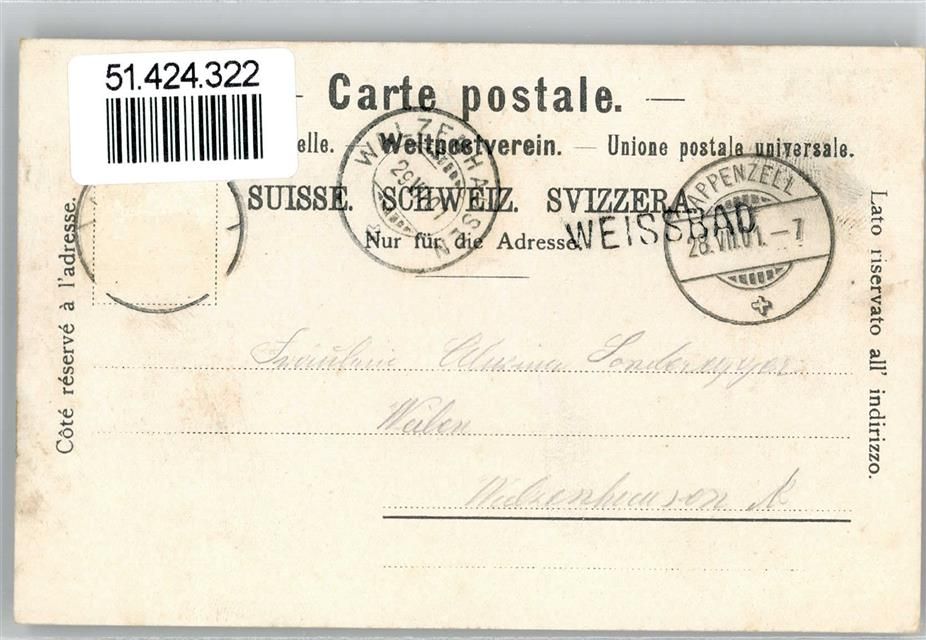 51.424.322
Carte postale.
elle. — Weltpostverein. — Unione postale universale.
SUISSE. SCHWEIZ. SVIZZERA.
Nur für die Adresse.
WALZENHAUSEN
29.VII.01
WEISSBAD
APPENZELL
28.VII.01.–7
Côté réservé à l'adresse.
Lato riservato all' indirizzo.
Fräulein Sonderegger
Weiben
Walzenhausen